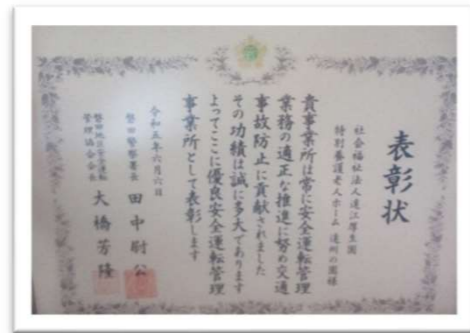 表彰状
社会福祉法人遠江厚生園
特別養護老人ホーム 遠州の園様
貴事業所は常に安全運転管理
業務の適正な推進に努め交通
事故防止に貢献されました
その功績は誠に多大であります
よってここに優良安全運転管理
事業所として表彰します
令和五年六月六日
磐田警察署長 田中尉公
磐田地区安全運転
管理協会会長 大橋芳隆